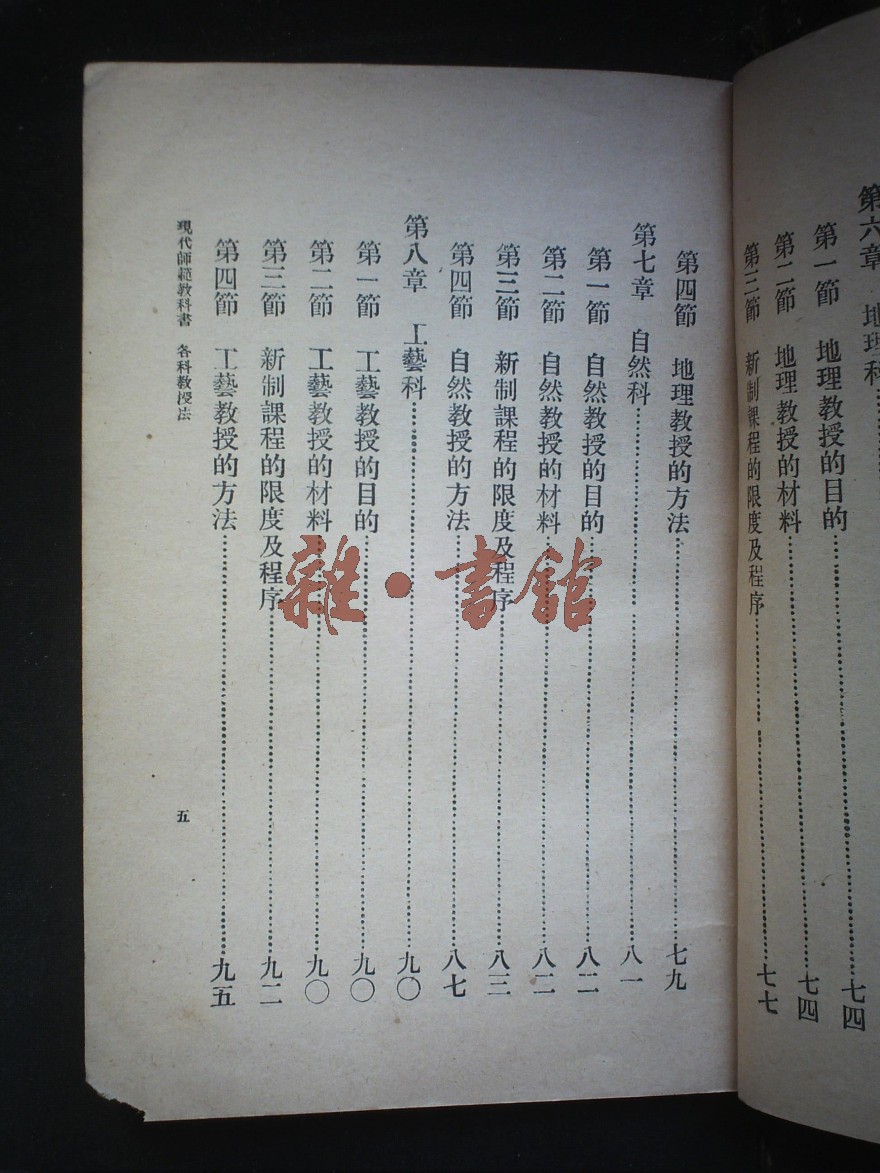 第六章　地理科……
第一節　地理教授的目的……七四
第二節　地理教授的材料……七四
第三節　新制課程的限度及程序……七七
第四節　地理教授的方法……七九
第七章　自然科……八一
第一節　自然教授的目的……八二
第二節　自然教授的材料……八二
第三節　新制課程的限度及程序……八三
第四節　自然教授的方法……八七
第八章　工藝科……九〇
第一節　工藝教授的目的……九〇
第二節　工藝教授的材料……九〇
第三節　新制課程的限度及程序……九二
第四節　工藝教授的方法……九五
現代師範教科書　各科教授法　五
雜·書館